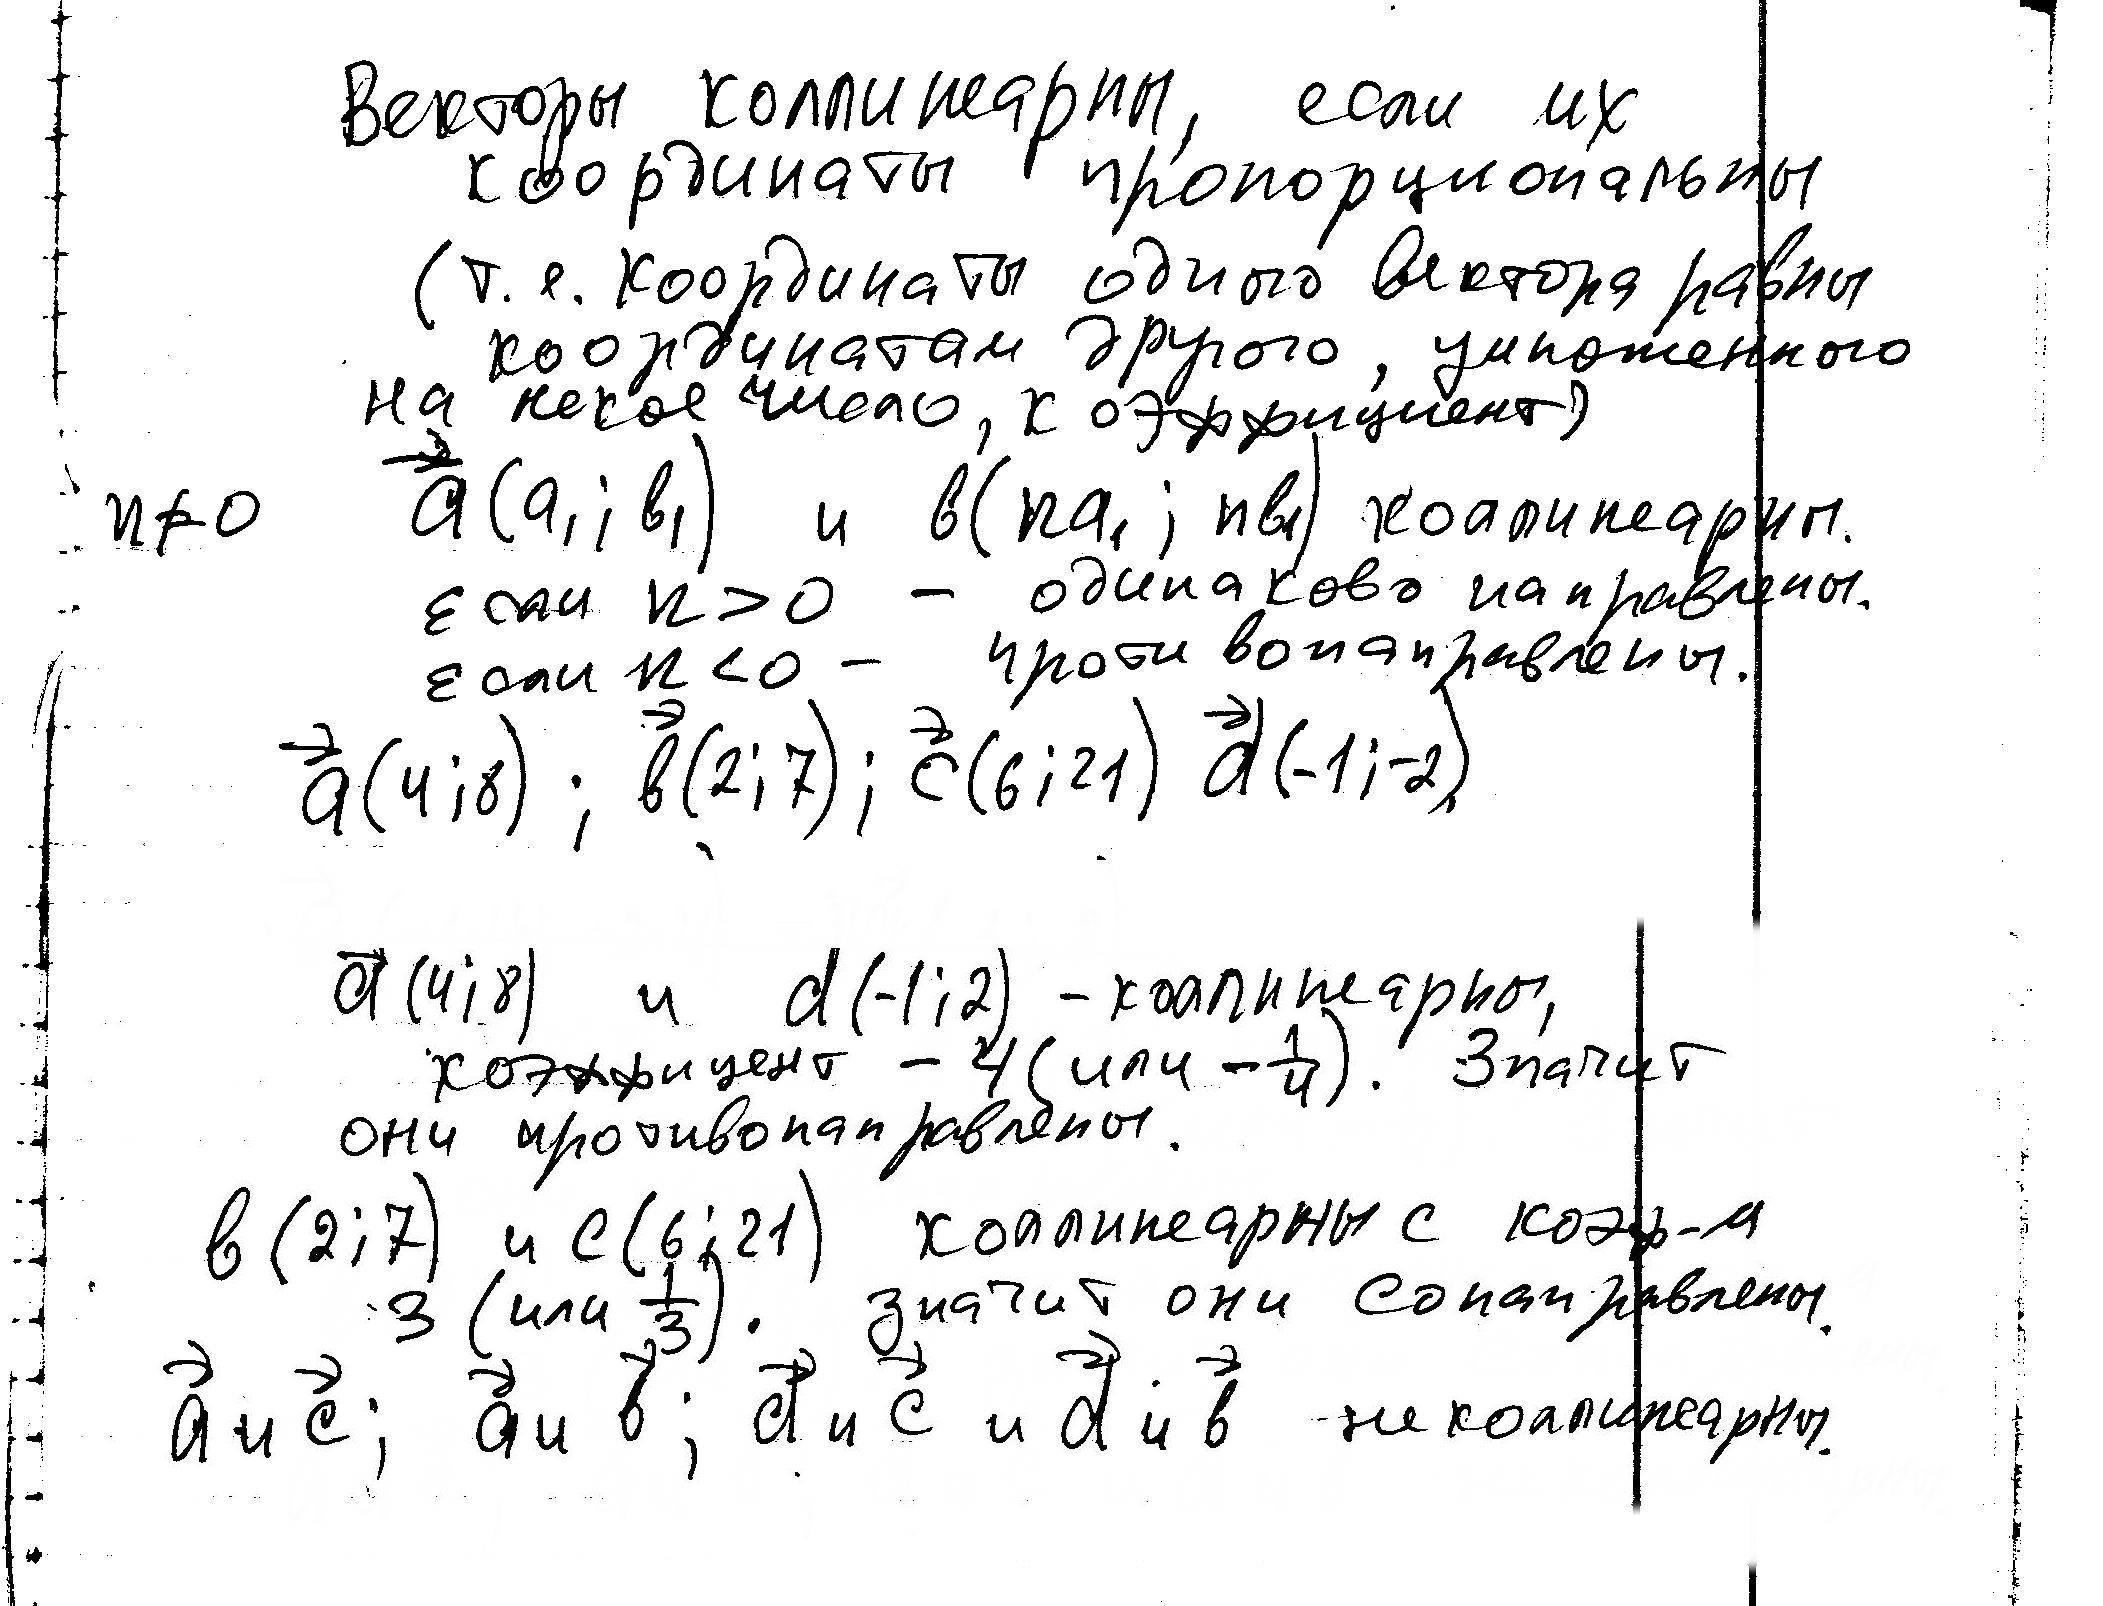 Векторы коллинеарны, если их
координаты пропорциональны
(т.е. координаты одного вектора равны
координатам другого, умноженного
на некое число, коэффициент)
n≠0 a⃗(a₁; в₁) и в(na₁; nв₁) коллинеарны.
если n>0 – одинаково направлены.
если n<0 – противонаправлены.
a⃗(4;8); в⃗(2;7); c⃗(6;21) d⃗(-1;-2)
a⃗(4;8) и d(-1;2) – коллинеарны,
коэффицент – 4(или -1/4). Значит
они противонаправлены.
в(2;7) и c(6;21) коллинеарны с коэф-м
3 (или 1/3). значит они сонаправлены.
a⃗ и c⃗; a⃗ и в⃗; d⃗ и c⃗ и d⃗ и в⃗ не коллинеарны.